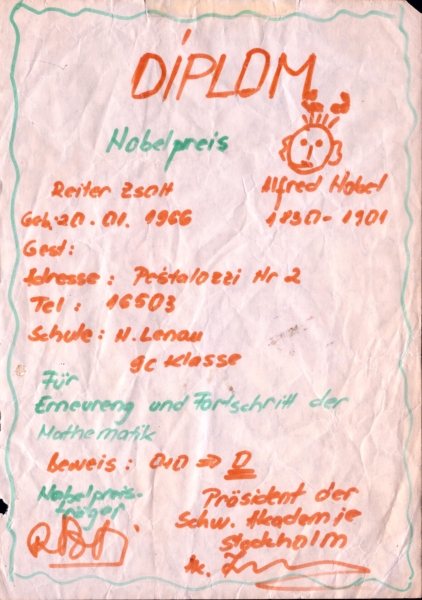 DIPLOM
Nobelpreis
Reiter Zsolt
Alfred Nobel
Geb. 20. 01. 1966
1830 - 1901
Gest:
Adresse : Pestalozzi Nr 2
Tel : 16503
Schule: N. Lenau
9c Klasse
Für
Erneureng und Fortschritt der
Mathematik
Beweis : 0:0 => 0
Nobelpreis-
träger
Präsident der
Schw. Akademie
Stockholm